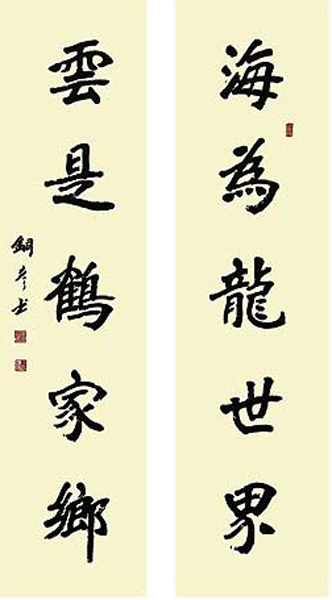 海為龍世界
雲是鶴家鄉
銅彦书